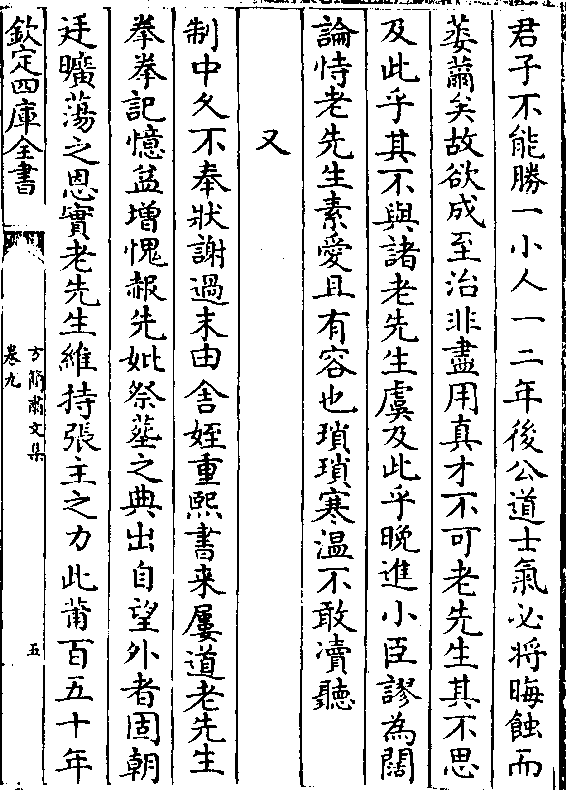 君子不能勝一小人一二年後公道士氣必將晦蝕而
萎薾矣故欲成至治非盡用真才不可老先生其不思
及此乎其不與諸老先生虞及此乎晚進小臣謬為闊
論恃老先生素愛且有容也瑣瑣寒溫不敢凟聽
又
制中久不奉狀謝過末由舍姪重熙書来屢道老先生
拳拳記憶益增愧赧先妣祭塟之典出自望外者固朝
廷曠蕩之恩實老先生維持張王之力此莆百五十年
欽定四庫全書
方簡肅文集
卷九
五